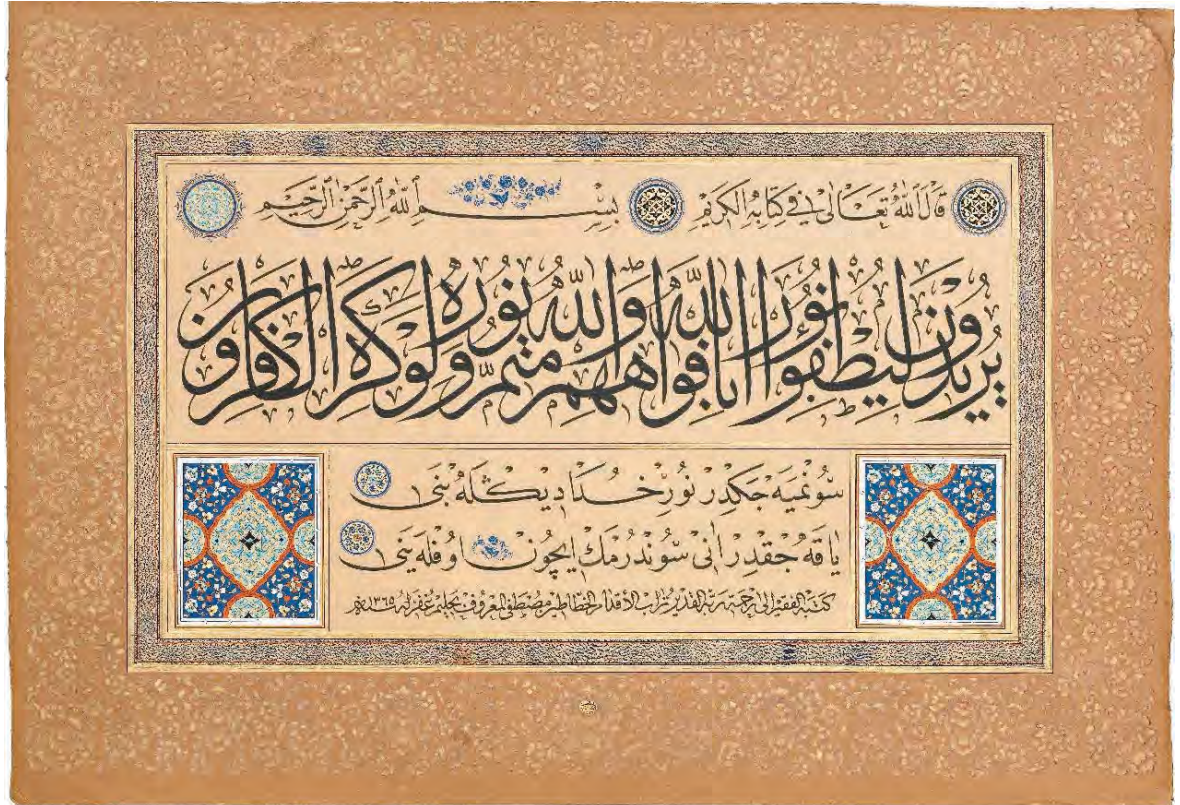 قال الله تعالى في كتابه الكريم بسم الله الرحمن الرحيم
يريدون ليطفؤا نور الله بافواههم والله متم نوره ولو كره الكافرون
سونميه جكدر نور خدا ديكله بنى
ياقه جقدر انى سوندرمك ايچون اوفله ينى
كتبه الفقير الى رحمة ربه القدير تراب الاقدام الخطاطين مصطفى المعروف بحليم غفر له ١٣٦٥